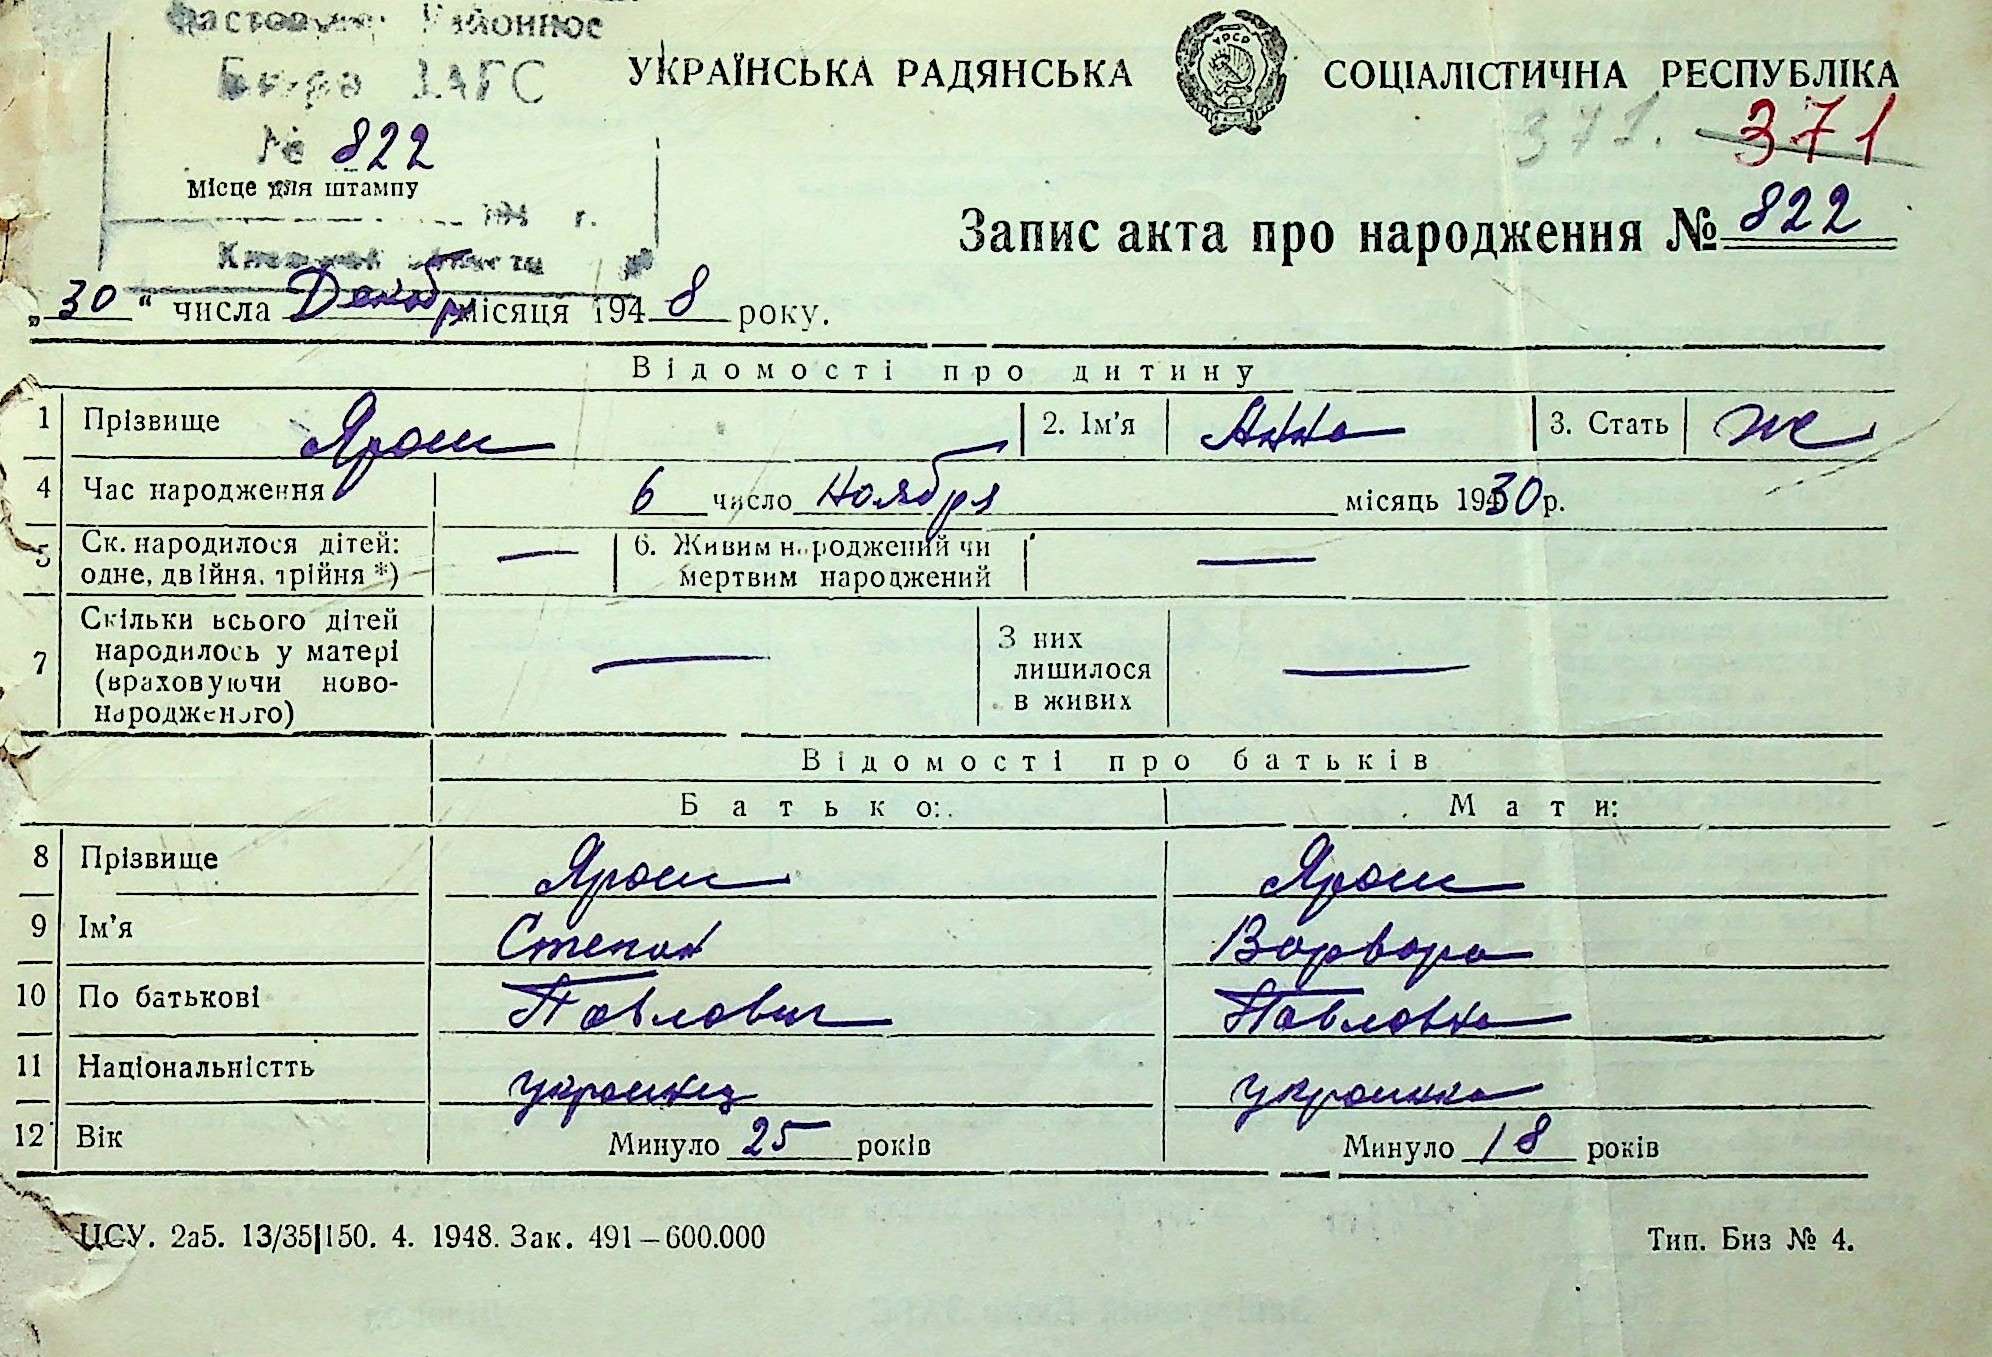 Районное
Бюро ЗАГС
№ 822
Місце для штампу
194 г.
УКРАЇНСЬКА РАДЯНСЬКА СОЦІАЛІСТИЧНА РЕСПУБЛІКА
УРСР
371. 371
Запис акта про народження № 822
„30“ числа Декабр місяця 1948 року.
Відомості про дитину
1 Прізвище Ярош 2. Ім'я Анна 3. Стать ж
4 Час народження 6 число ноября місяць 1930 р.
5 Ск. народилося дітей: одне, двійня, трійня *) — 6. Живим народжений чи мертвим народжений —
7 Скільки всього дітей народилось у матері (враховуючи ново-народженого) — З них лишилося в живих —
Відомості про батьків
Батько: Мати:
8 Прізвище Ярош Ярош
9 Ім'я Степан Варвара
10 По батькові Павлович Павловна
11 Національністть украинец украинка
12 Вік Минуло 25 років Минуло 18 років
ЦСУ. 2а5. 13/35|150. 4. 1948. Зак. 491—600.000 Тип. Биз № 4.